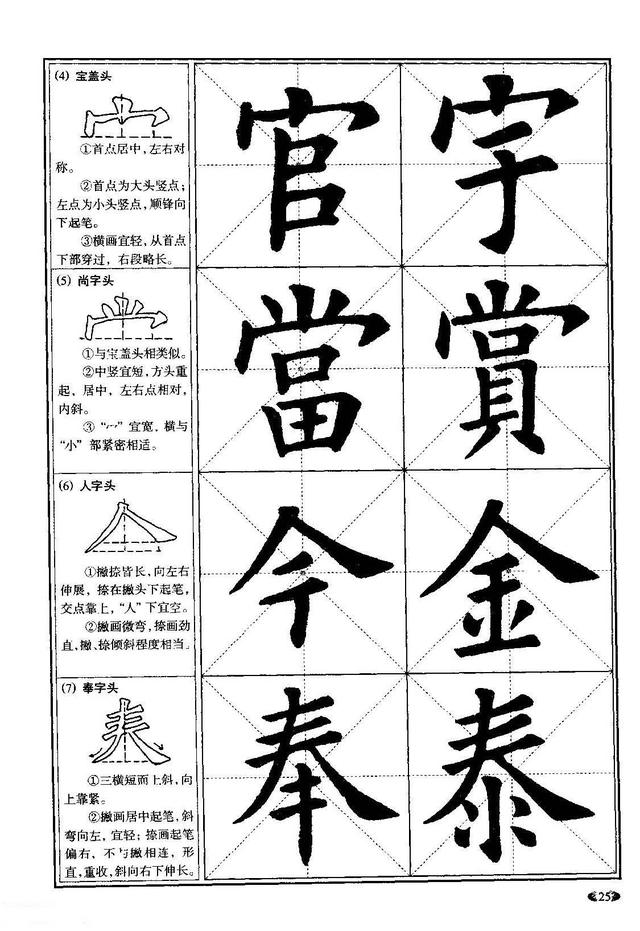 (4) 宝盖头
①首点居中，左右对
称。
②首点为大头竖点；
左点为小头竖点，顺锋向
下起笔。
③横画宜轻，从首点
下部穿过，右段略长。
官 字
(5) 尚字头
①与宝盖头相类似。
②中竖宜短，方头重
起、居中，左右点相对，
内斜。
③“冖”宜宽，横与
“小”部紧密相适。
當 賞
(6) 人字头
①撇捺皆长，向左右
伸展，捺在撇头下起笔，
交点靠上，“人”下宜空。
②撇画微弯，捺画劲
直，撇、捺倾斜程度相当。
今 金
(7) 奉字头
①三横短而上斜，向
上靠紧。
②撇画居中起笔，斜
弯向左，宜轻；捺画起笔
偏右，不与撇相连，形
直，重收，斜向右下伸长。
奉 泰
25